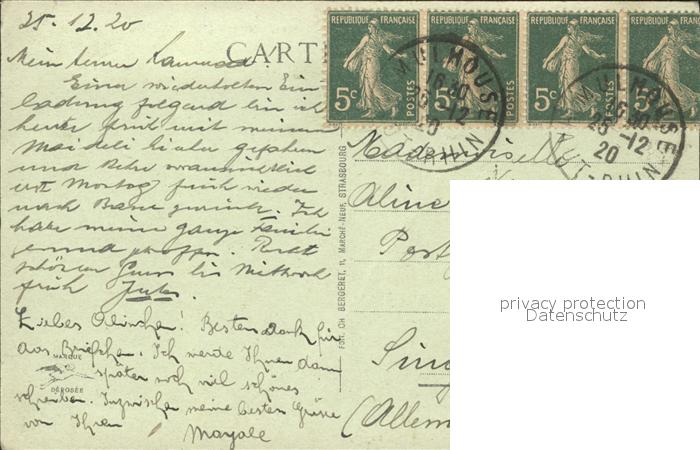 25.12.20
CARTE
REPUBLIQUE FRANÇAISE REPUBLIQUE FRANÇAISE REPUBLIQUE FRANÇAISE REPUBLIQUE FRANÇAISE
5c POSTES 5c POSTES 5c POSTES 5c
MULHOUSE
16.30
25-12
20
HT-RHIN
MULHOUSE
25-12
20
HT-RHIN
Mein lieber
Einer wiederholten Ein
ladung folgend bin ich
heute früh mit meinem
Maideli hierher gefahren
und kehre voraussichtlich
erst Montag früh wieder
nach Basel zurück. Ich
habe meine ganze Familie
gesund getroffen. Recht
schönen Gruss bis Mittwoch
früh Jules
Liebes Alinchen! Besten dank für
das Briefchen. Ich werde Ihnen dann
später noch viel schönes
schreiben. Inzwischen meine besten Grüsse
von Ihren
Mayale
MARQUE
DÉPOSÉE
FOTO. CH. BERGERET, 11, MARCHÉ-NEUF, STRASBOURG
Mademoiselle
Aline
Post
Sin
(Allem
privacy protection
Datenschutz